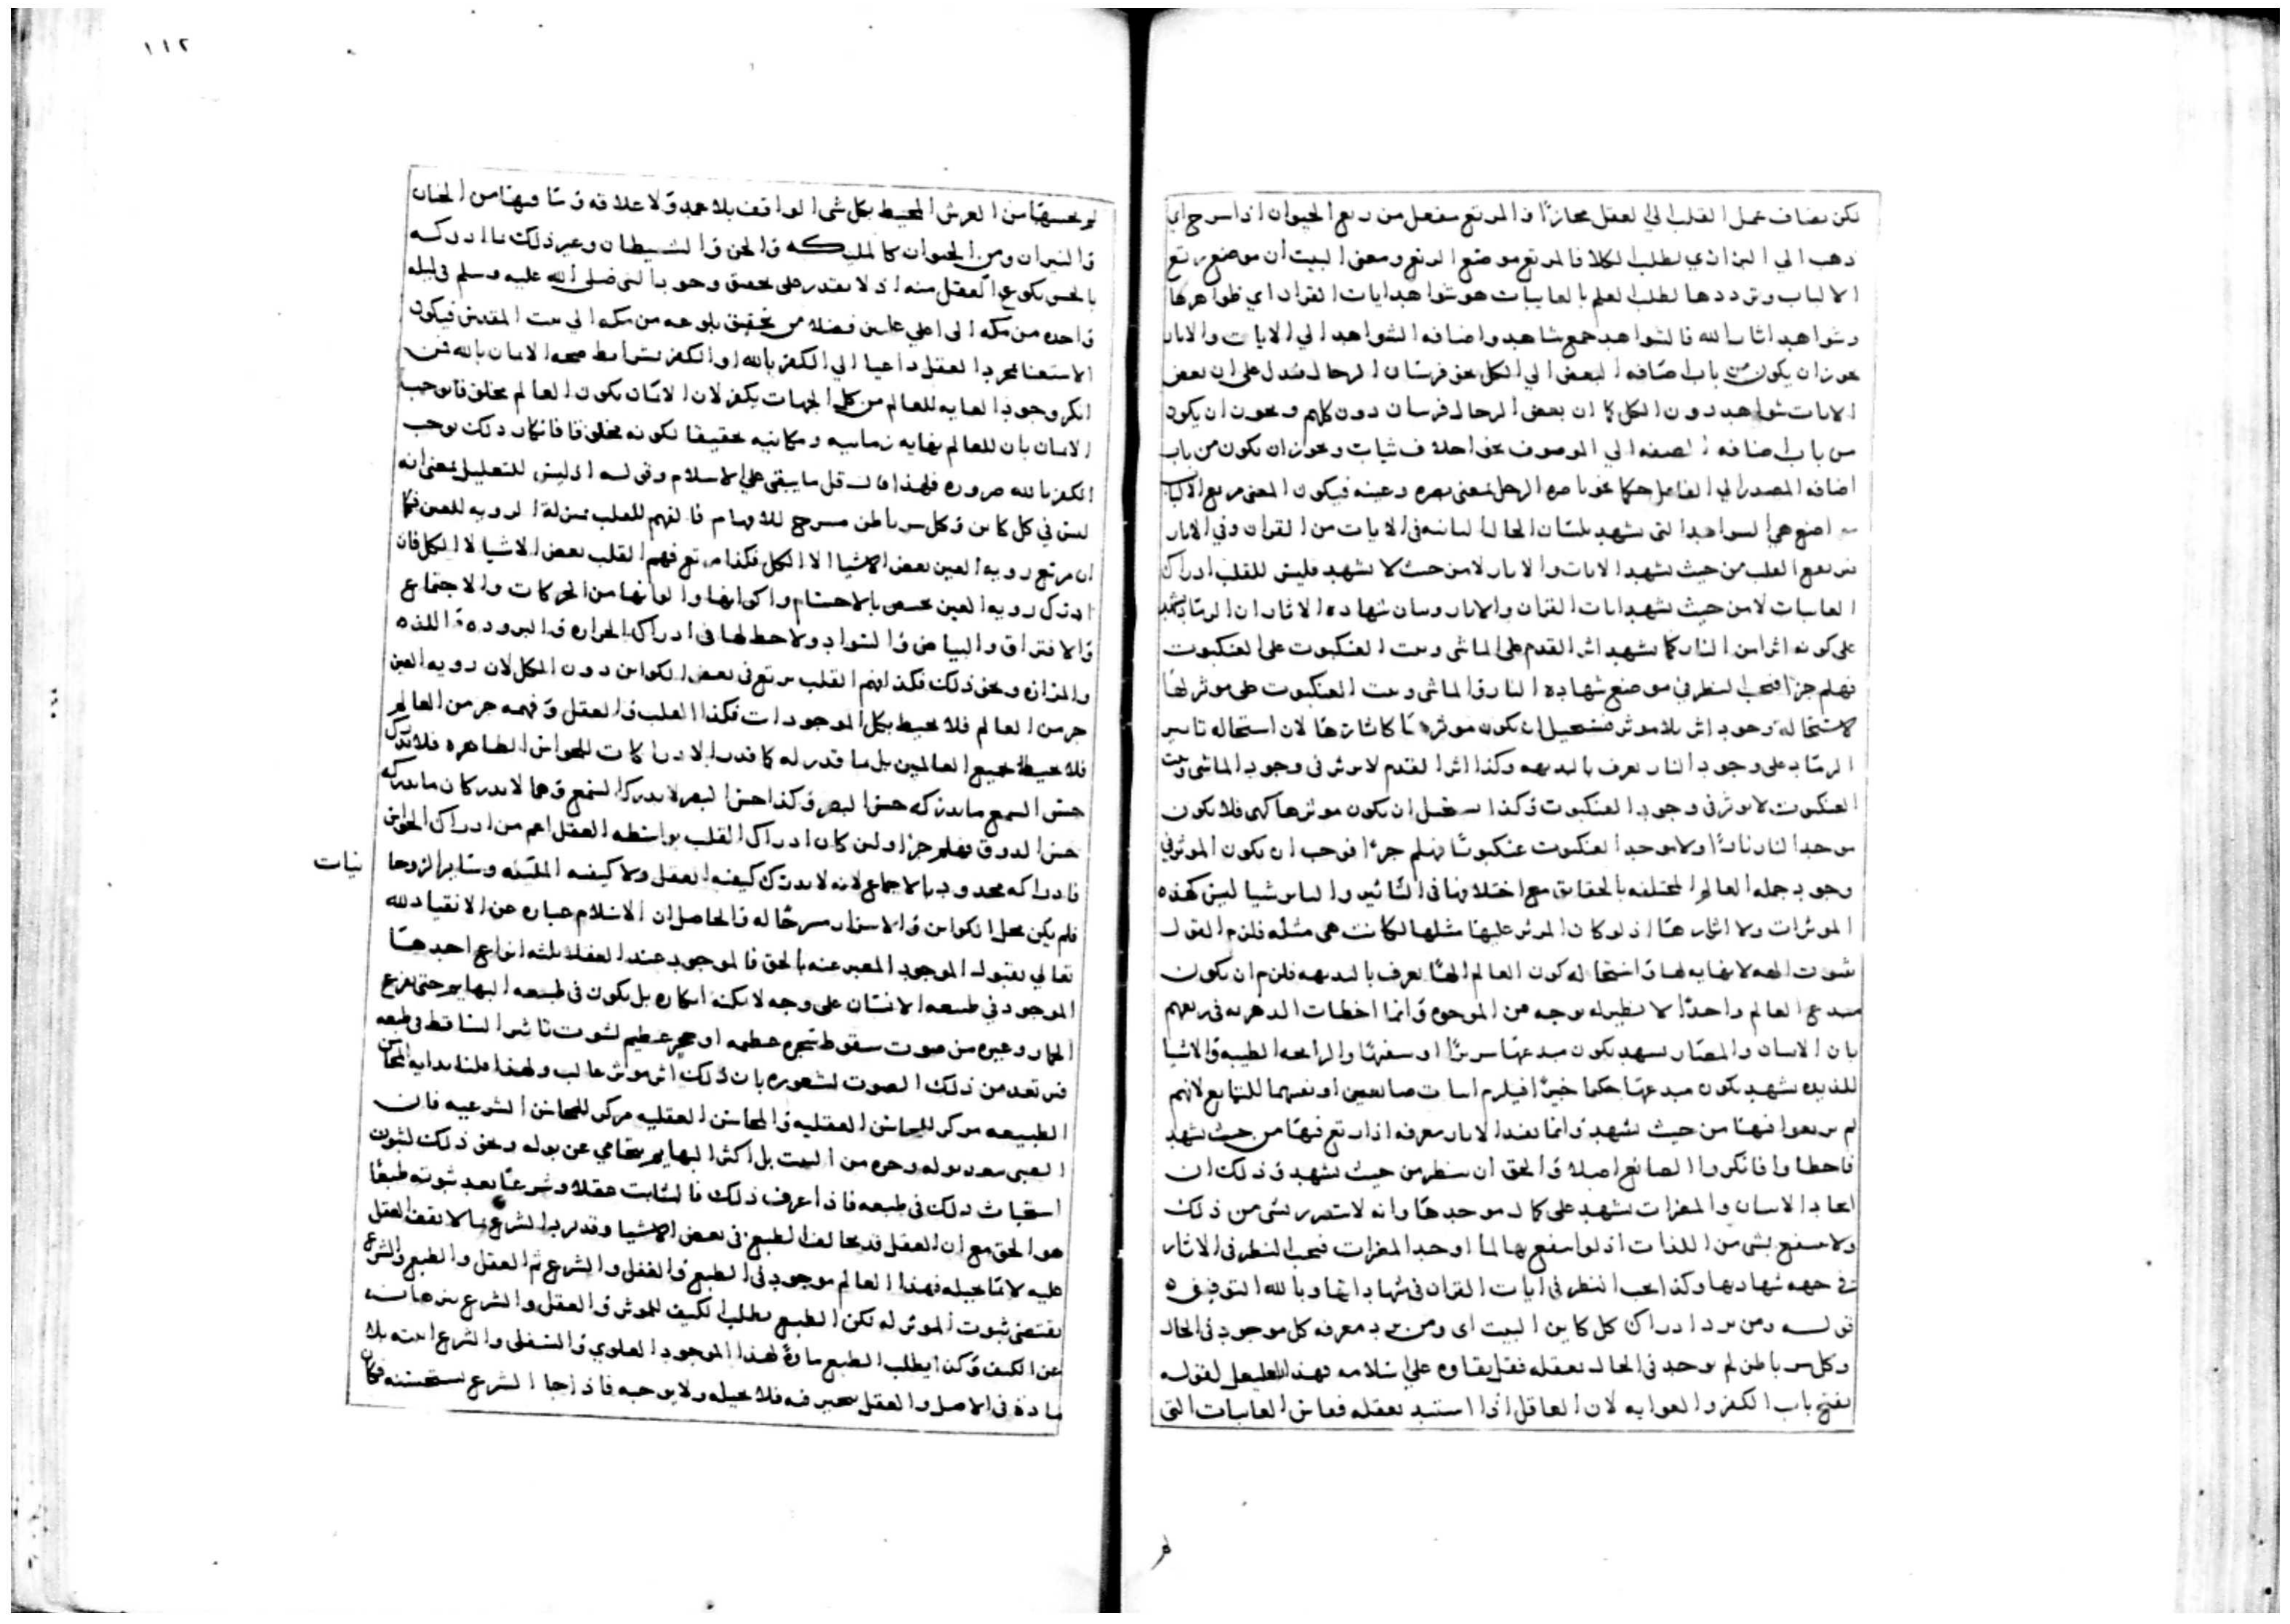 لكن يضاف عمل القلب الي العقل مجازا فالمرتع مفعل من ربع الحيوان اذا سرح اي
ذهب الي البر الذي يطلب الكلا فالمرتع موضع الرتع ومعنى البيت ان موضع رتع
الالباب وترددها لطلب العلم بالغايبات هو شواهد ايات القران اي ظواهرها
وشواهد اثار الله فالشواهد جمع شاهد واضافه الشواهد الي الايات والاثار
يجوز ان يكون من باب اضافه البعض الي الكل نحو فرسان الرجال فتدل على ان بعض
الايات شواهد دون الكل كما ان بعض الرجال فرسان دون كلهم ويجوز ان يكون
من باب اضافه الصفه الي الموصوف نحو اخلاق ثياب ويجوز ان يكون من باب
اضافه المصدر الي الفاعل حكما نحو باصره الرجل بمعنى بصره وعينه فيكون المعنى مرتع الالباب
مواضع هي الشواهد التي تشهد بلسان الحال الثابته في الايات من القران وفي الاثار
يرتع القلب من حيث تشهد الايات والاثار لا من حيث لا تشهد فليس للقلب ادراك
الغايبات لا من حيث تشهد ايات القران والاثار وبيان شهاده الاثار ان الرماد يشهد
على كونه اثرا من النار كما يشهد اثر القدم على الماشي وبيت العنكبوت على العنكبوت
فهلم جرا فيجب النظر في موضع شهاده النار والماشي وبيت العنكبوت على موثر لها
لاستحاله وجود اثر بلا موثر فيستحيل ان يكون موثرها كاثارها لان استحاله تاثير
الرماد على وجود النار يعرف بالبديهه وكذا اثر القدم لا يوثر في وجود الماشي وبيت
العنكبوت لا يوثر في وجود العنكبوت وكذا يستحيل ان يكون موثرها كهي فلا يكون
موجد النار نارا ولا موجد العنكبوت عنكبوتا فهلم جرا فوجب ان يكون الموثر في
وجود جمله العالم المختلفه بالحقايق مع اختلافها في التاثير والتاثر شيا ليس كهذه
الموثرات ولا اثارها اذ لو كان الموثر عليها مثلها لكانت هي مثله فلزم القول
بثبوت الهه لا نهايه لها واستحاله كون العالم الها يعرف بالبديهه فلزم ان يكون
مبدع العالم واحدا لا نظير له بوجه من الوجوه وانما اخطات الدهريه في زعمهم
بان الانسان والمضار يشهد بكون مبدعها شريرا او سفيها والرايحه الطيبه والاشيا
اللذيذه تشهد بكون مبدعها حكيما خيرا فيلزم اثبات صانعين او نفيهما للتمانع لانهم
لم يرتعوا فيها من حيث تشهد وانما تفيد الاثار معرفه اذا رتع فيها من حيث تشهد
فاخطاوا فانكروا الصانع اصلا والحق ان ينظر من حيث تشهد وذلك ان
ايجاد الانسان والمضرات تشهد على كمال موجدها وانه لا يتضرر بشي من ذلك
ولا ينتفع بشي من اللذات اذ لو انتفع بها لما اوجد المضرات فيجب النظر في الاثار
في جهه شهادتها وكذا يجب النظر في ايات القران في شهاداتها وبالله التوفيق ه
قوله ومن يرد ادراك كل كاين البيت اي ومن يرد معرفه كل موجود في الحال
وكل سر باطن لم يوجد في الحال بعقله فقل بقاوه على اسلامه فهذا التعليل لقوله
يفتح باب الكفر والغوايه لان العاقل اذا استبد بعقله فقاس الغايبات التي
لم
١١٢
لم يحسها من العرش المحيط بكل شي الواقف بلا عمد ولا علاقه وما فيها من الجنان
والنيران ومن الحيوان كالملكه والجن والشيطان وغير ذلك بما ادركه
بالحس يكوع العقل منه اذ لا يقدر على تحقيق وجود النبي صلى الله عليه وسلم في ليله
واحده من مكه الى اعلى عليين فضلا من تحقيق بلوغه من مكه الي بيت المقدس فيكون
الاستغنا بمجرد العقل داعيا الي الكفر بالله او الكفر بشرايط صحه الايمان بالله فمن
انكر وجود الغايه للعالم من كل الجهات يكفر لان الايمان بكون العالم مخلوقا يوجب
الايمان بان للعالم نهايه زمانيه ومكانيه تحقيقا لكونه مخلوقا فانكار ذلك يوجب
الكفر بالله ضروره فلهذا قال قل ما يبقى على الاسلام وقوله اذ ليس للتعليل بمعنى انه
ليس في كل كاين وكل سر باطن مسرح للافهام فالفهم للقلب بمنزلة الرويه للعين فكما
ان مرتع رويه العين بعض الاشيا لا الكل فكذا مرتع فهم القلب بعض الاشيا لا الكل فان
ادراك رويه العين مختص بالاجسام واكوانها والوانها من الحركات والاجتماع
والافتراق والبياض والسواد ولا حظ لها في ادراك الحراره والبروده واللذه
والمراره ونحو ذلك فكذا فهم القلب يرتع في بعض الكواين دون الكل لان رويه العين
جز من العالم فلا يحيط بكل الموجودات فكذا القلب والعقل وفهمه جز من العالم
فلا يحيط بجميع العالمين بل ما قدر له كما قدر الادراكات للحواس الظاهره فلا يدرك
حس السمع ما يدركه حس البصر وكذا حس البصر لا يدرك السمع وهما لا يدركان ما يدركه
حس الذوق فهلم جرا ولين كان ادراك القلب بواسطه العقل اعم من ادراك الحواس
فادراكه محدود بالاجماع لانه لا يدرك كيفيه العقل ولا كيفيه الملكيه وساير الروحا
نيات
فلم يكن محل الكواين والاسرار مسرحا له والحاصل ان الاسلام عباره عن الانقياد لله
تعالي بقبول الموجود المعبر عنه بالحق فالموجود عند العقلا ثلثه انواع احدها
الموجود في طبيعه الانسان على وجه لا يمكنه انكاره بل يكون في طبيعه البهايم حتى يفزع
الحمار وغيره من صوت سقوط شجره عظيمه او حجر عظيم لثبوت تاثير الساقط في طبعه
فيرتعد من ذلك الصوت لشعوره بان ذلك اثر موثر غالب ولهذا قلنا بدايه المحاسن
الطبيعه مركز للمحاسن العقليه والمحاسن العقليه مركز للمحاسن الشرعيه فان
الصبي يبعد بوله وخره من البيت بل اكثر البهايم يتحامي عن بوله ونحو ذلك لثبوت
استخباث ذلك في طبعه فاذا عرف ذلك فالثابت عقلا وشرعا بعد ثبوته طبعا
هو الحق مع ان العقل قد يخالف الطبع في بعض الاشيا وقد يرد الشرع بما لا يقف العقل
عليه لا بما يحيله فهذا العالم موجود في الطبع والعقل والشرع ثم العقل والطبع والشرع
يقتضي ثبوت الموثر له لكن الطبع يطلب الكيف للموثر والعقل والشرع ينزهانه
عن الكيف وكذا يطلب الطبع مادة لهذا الموجود العلوي والسفلى والشرع اثبته بلا
مادة في الاصل والعقل يتحير فيه فلا يحيله ولا يوجبه فاذا جا الشرع يستحسنه فكان